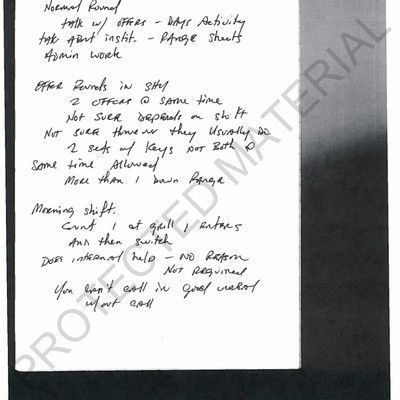 Normal Round
talk w/ offers - days Activity
talk about instit. - Range sheets
Admin work
offer Rounds in SHU
2 offers @ same time
Not sure depends on shift
Not sure however they usually do
2 sets of keys not both @
same time allowed
more than 1 down range
Morning shift.
Count 1 at grill 1 enters
and then switch
Does internal help - no reason
not required
You can't call in good
w/out call
PROTECTED MATERIAL